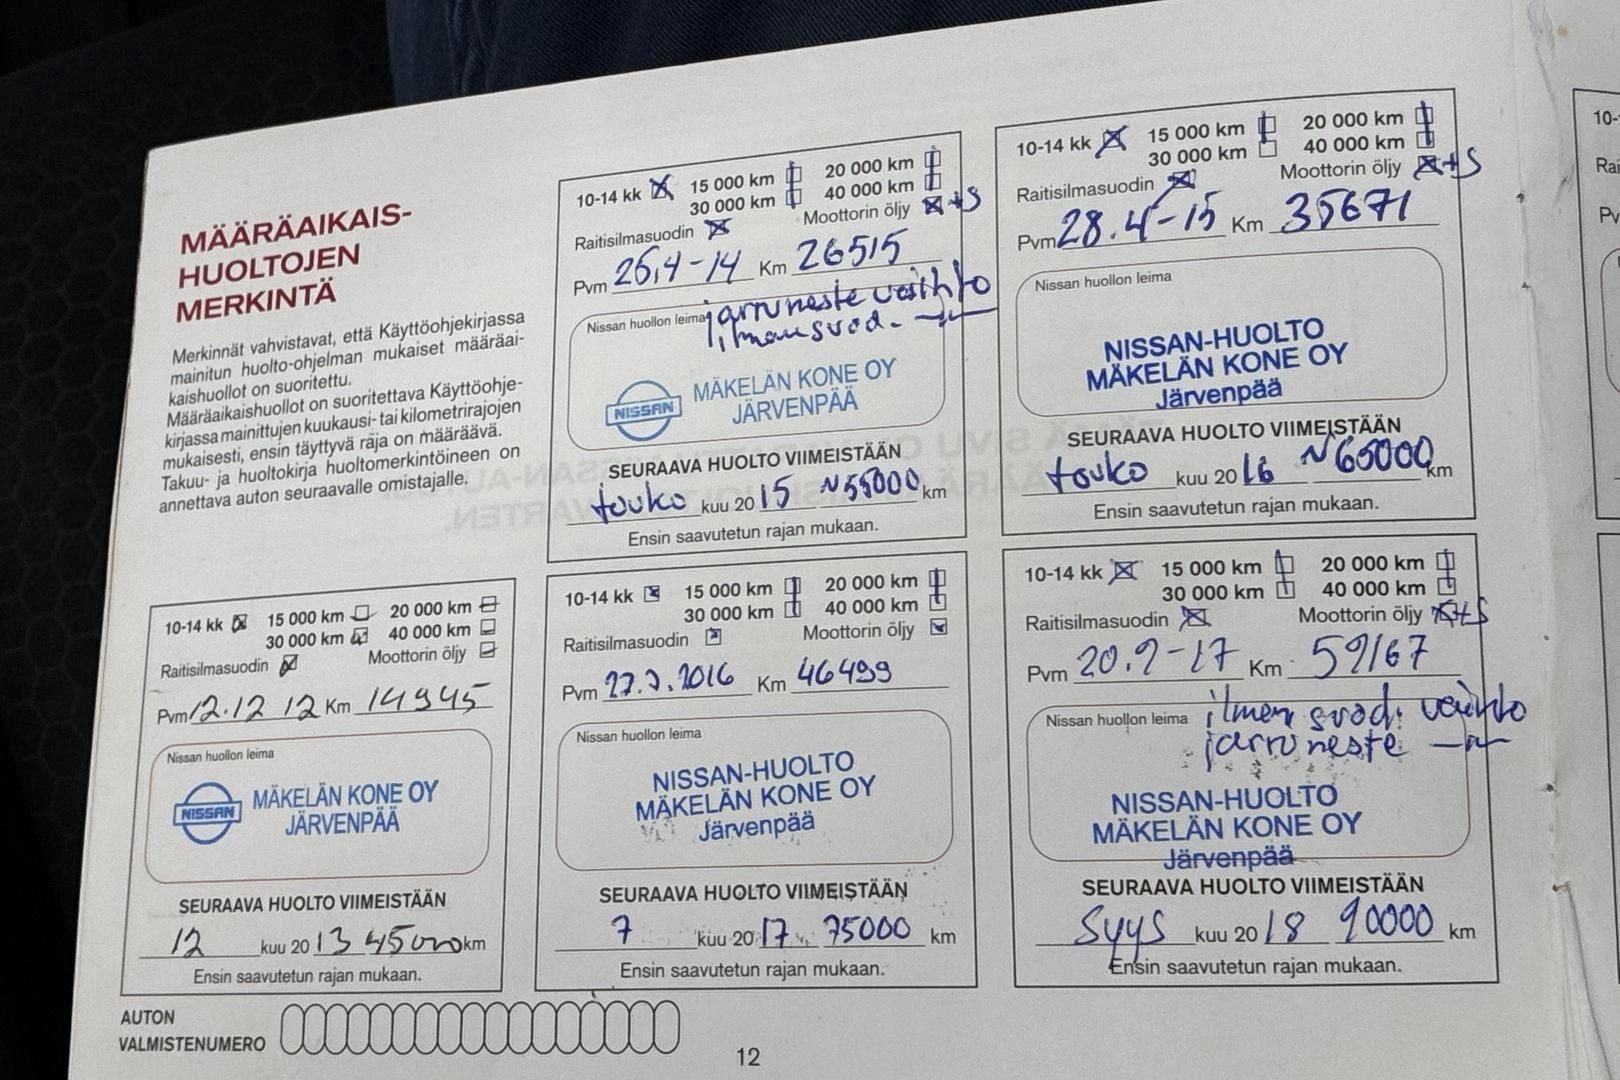 MÄÄRÄAIKAIS-
HUOLTOJEN
MERKINTÄ
Merkinnät vahvistavat, että Käyttöohjekirjassa
mainitun huolto-ohjelman mukaiset määräai-
kaishuollot on suoritettu.
Määräaikaishuollot on suoritettava Käyttöohje-
kirjassa mainittujen kuukausi- tai kilometrirajojen
mukaisesti, ensin täyttyvä raja on määräävä.
Takuu- ja huoltokirja huoltomerkintöineen on
annettava auton seuraavalle omistajalle.
10-14 kk 15 000 km 20 000 km
30 000 km 40 000 km
Raitisilmasuodin Moottorin öljy
Pvm 12.12 12 Km 14945
Nissan huollon leima
NISSAN MÄKELÄN KONE OY
JÄRVENPÄÄ
SEURAAVA HUOLTO VIIMEISTÄÄN
12 kuu 2013 45000 km
Ensin saavutetun rajan mukaan.
10-14 kk 15 000 km 20 000 km
30 000 km 40 000 km
Raitisilmasuodin Moottorin öljy +S
Pvm 26,4-14 Km 26515
jarruneste vaihto
Nissan huollon leima ilmansuod.
NISSAN MÄKELÄN KONE OY
JÄRVENPÄÄ
SEURAAVA HUOLTO VIIMEISTÄÄN
touko kuu 2015 ~55000 km
Ensin saavutetun rajan mukaan.
10-14 kk 15 000 km 20 000 km
30 000 km 40 000 km
Raitisilmasuodin Moottorin öljy +S
Pvm 28.4-15 Km 35671
Nissan huollon leima
NISSAN-HUOLTO
MÄKELÄN KONE OY
Järvenpää
SEURAAVA HUOLTO VIIMEISTÄÄN
touko kuu 2016 ~65000 km
Ensin saavutetun rajan mukaan.
10-14 kk 15 000 km 20 000 km
30 000 km 40 000 km
Raitisilmasuodin Moottorin öljy
Pvm 27.7.2016 Km 46499
Nissan huollon leima
NISSAN-HUOLTO
MÄKELÄN KONE OY
Järvenpää
SEURAAVA HUOLTO VIIMEISTÄÄN
7 kuu 2017 75000 km
Ensin saavutetun rajan mukaan.
10-14 kk 15 000 km 20 000 km
30 000 km 40 000 km
Raitisilmasuodin Moottorin öljy +S
Pvm 20.9-17 Km 59167
Nissan huollon leima ilman suod. vaihto
jarruneste
NISSAN-HUOLTO
MÄKELÄN KONE OY
Järvenpää
SEURAAVA HUOLTO VIIMEISTÄÄN
syys kuu 2018 90000 km
Ensin saavutetun rajan mukaan.
AUTON
VALMISTENUMERO
12